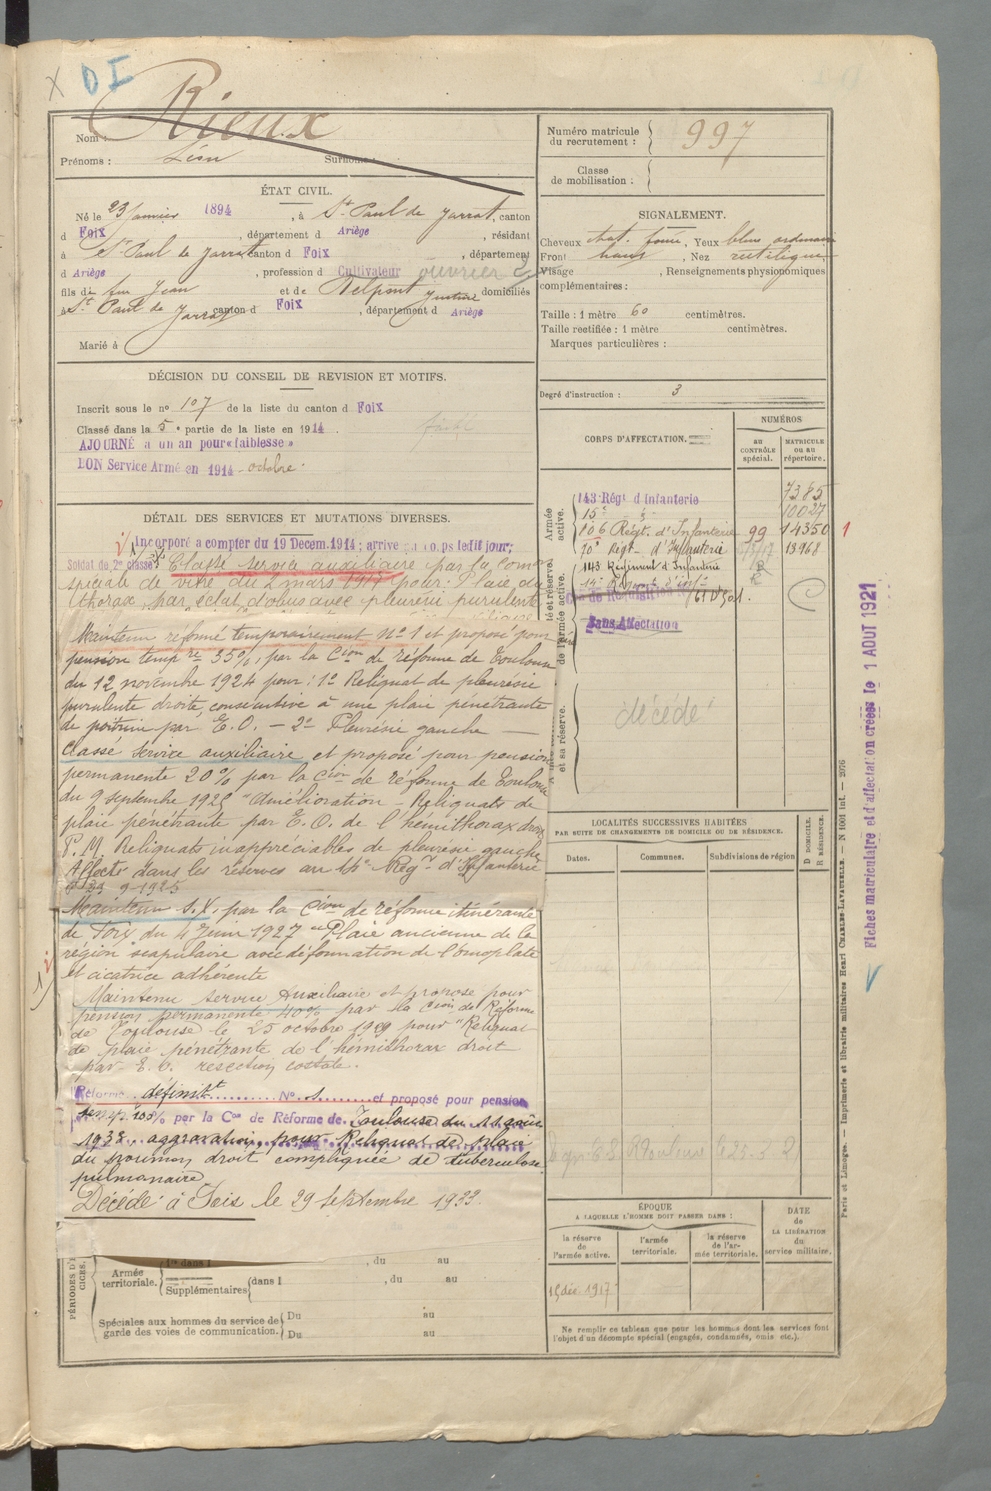 X DI
Nom : Rieux
Prénoms : Léon Surnoms :
ÉTAT CIVIL.
Né le 23 janvier 1894, à St Paul de Jarrat, canton
d Foix, département d Ariège, résidant
à St Paul de Jarrat canton d Foix, département
d Ariège, profession d Cultivateur ouvrier
fils de feu Jean et de Delpont Justine domiciliés
à St Paul de Jarrat canton d Foix, département d Ariège
Marié à
DÉCISION DU CONSEIL DE REVISION ET MOTIFS.
Inscrit sous le no 107 de la liste du canton d Foix
Classé dans la 5e partie de la liste en 1914.
AJOURNÉ a un an pour «faiblesse»
BON Service Armé en 1914 - octobre.
DÉTAIL DES SERVICES ET MUTATIONS DIVERSES.
Incorporé a compter du 19 Decem. 1914; arrivé au corps ledit jour;
Soldat de 2e classe Classé service auxiliaire par la Com
spéciale de du 2 mars 1917 pour: Plaie du
thorax par éclat d'obus avec pleurésie purulente
Maintenu réformé temporairement No 1 et proposé pour
pension tempre 35%, par la Cion de réforme de Toulouse
du 12 novembre 1924 pour: 1o Reliquat de pleurésie
purulente droite, consécutive à une plaie pénétrante
de poitrine par E.O. - 2o Pleurésie gauche —
Classé Service auxiliaire et proposé pour pension
permanente 20% par la Cion de réforme de Toulouse
du 9 septembre 1925 "Amélioration - Reliquats de
plaie pénétrante par E.O. de l'hémithorax droit
P.M. Reliquats inappréciables de pleurésie gauche
Affecté dans les réserves au 14e Regt d'Infanterie
9-1925
Maintenu S.X. par la Cion de réforme itinérante
de Foix du 4 Juin 1927 "Plaie ancienne de la
région scapulaire avec déformation de l'omoplate
et cicatrice adhérente
Maintenu Service Auxiliaire et proposé pour
pension permanente 40% par la Cion de Réforme
de Toulouse le 25 octobre 1929 pour "Reliquat
de plaie pénétrante de l'hémithorax droit
par E.O. resection costale.
Réforme définitt No 1 et proposé pour pension
100% par la Con de Réforme de Toulouse du
aggravation pour Reliquat de plaie
du poumon droit compliquée de tuberculose
pulmonaire
Décédé à Foix le 29 Septembre 1933.
PÉRIODES D'EXERCICES.
Armée territoriale.
1re dans l , du au
Supplémentaires dans l , du au
Spéciales aux hommes du service de garde des voies de communication.
Du au
Du au
Numéro matricule du recrutement : 997
Classe de mobilisation :
SIGNALEMENT.
Cheveux chat. foncé, Yeux bleus ordinaire
Front haut, Nez rectiligne
Visage , Renseignements physionomiques
complémentaires :
Taille : 1 mètre 60 centimètres.
Taille rectifiée : 1 mètre centimètres.
Marques particulières :
Degré d'instruction : 3
CORPS D'AFFECTATION.
NUMÉROS
au CONTRÔLE spécial.
MATRICULE ou au répertoire.
Armée active.
143 Régt d'Infanterie 7385
15e 10027
106 Régt. d'Infanterie 99 14350 1
10e Régt d'Infanterie 13968
143 Régiment d'Infanterie
14e Régt d'Infie
Sans Affectation
décédé
LOCALITÉS SUCCESSIVES HABITÉES
PAR SUITE DE CHANGEMENTS DE DOMICILE OU DE RÉSIDENCE.
Dates.
Communes.
Subdivisions de région
D DOMICILE.
R RÉSIDENCE.
ÉPOQUE
A LAQUELLE L'HOMME DOIT PASSER DANS :
la réserve de l'armée active.
l'armée territoriale.
la réserve de l'armée territoriale.
DATE de LA LIBÉRATION du service militaire.
15 déc. 1917
Ne remplir ce tableau que pour les hommes dont les services font
l'objet d'un décompte spécial (engagés, condamnés, omis etc.).
Fiches matriculaire et d'affectation créées le 1 AOUT 1921
Paris et Limoges. — Imprimerie et librairie militaires Henri CHARLES-LAVAUZELLE. — N 1001 int. — 2076